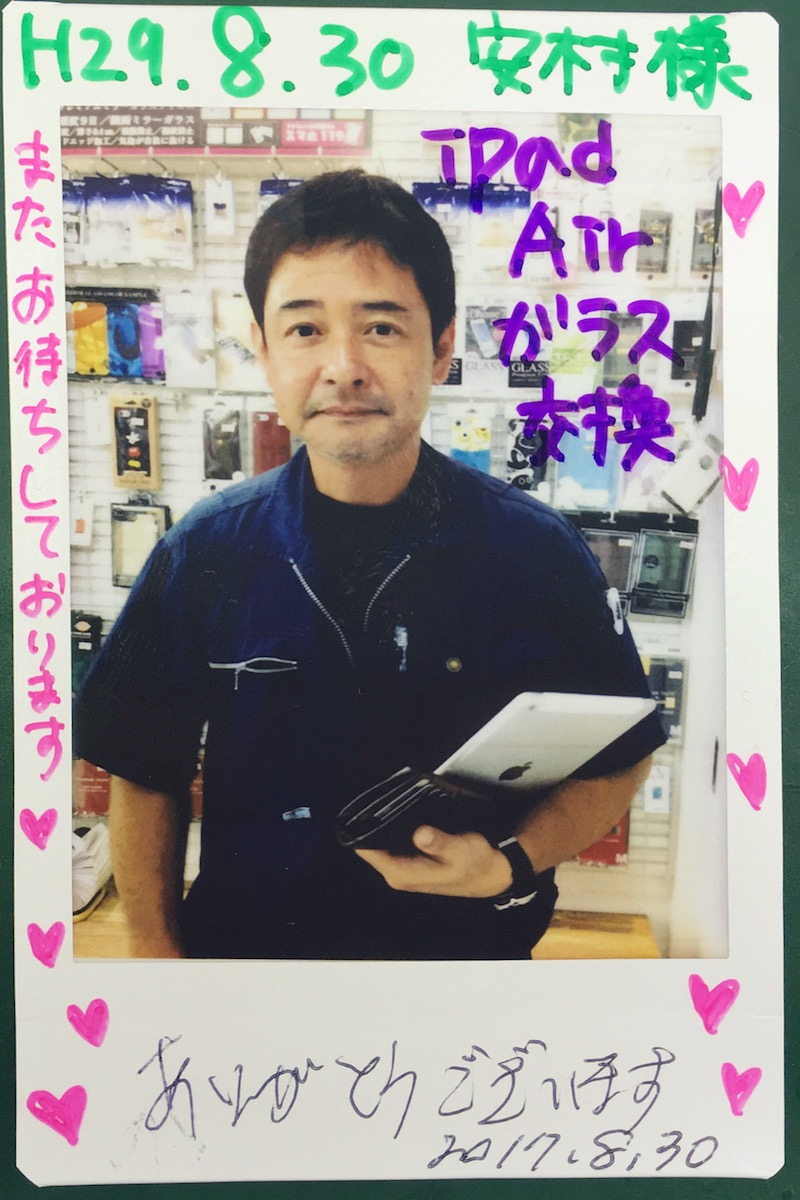 H29.8.30 安村様
またお待ちしております
iPad
Air
ガラス
交換
スマホ119
GLASS
GLASS
ありがとうございます
2017.8.30